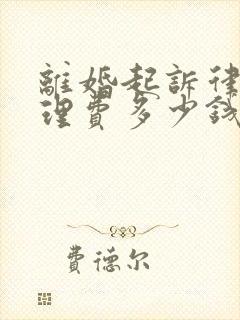 離婚起訴律
理費多少錢
費德尔